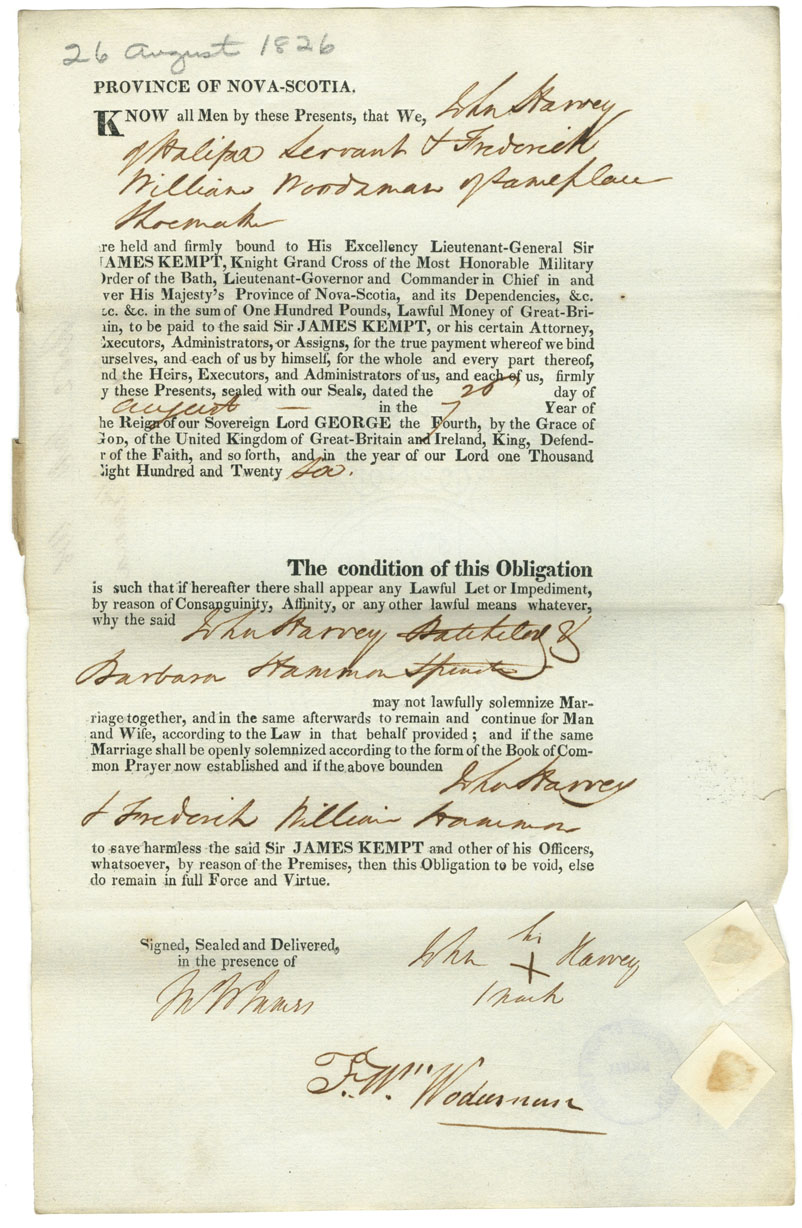 26 August 1826
PROVINCE OF NOVA-SCOTIA.
KNOW all Men by these Presents, that We, John Harvey
of Halifax Servant & Frederick
William Woodsman of same place
Shoemaker
re held and firmly bound to His Excellency Lieutenant-General Sir
JAMES KEMPT, Knight Grand Cross of the Most Honorable Military
Order of the Bath, Lieutenant-Governor and Commander in Chief in and
ver His Majesty's Province of Nova-Scotia, and its Dependencies, &c.
&c. &c. in the sum of One Hundred Pounds, Lawful Money of Great-Bri-
ain, to be paid to the said Sir JAMES KEMPT, or his certain Attorney,
Executors, Administrators, or Assigns, for the true payment whereof we bind
urselves, and each of us by himself, for the whole and every part thereof,
nd the Heirs, Executors, and Administrators of us, and each of us, firmly
y these Presents, sealed with our Seals, dated the 26 day of
August — in the 7 Year of
he Reign of our Sovereign Lord GEORGE the Fourth, by the Grace of
GOD, of the United Kingdom of Great-Britain and Ireland, King, Defend-
r of the Faith, and so forth, and in the year of our Lord one Thousand
Eight Hundred and Twenty Six.
The condition of this Obligation
is such that if hereafter there shall appear any Lawful Let or Impediment,
by reason of Consanguinity, Affinity, or any other lawful means whatever,
why the said John Harvey Batchelor &
Barbara Hammon Spinster
may not lawfully solemnize Mar-
riage together, and in the same afterwards to remain and continue for Man
and Wife, according to the Law in that behalf provided; and if the same
Marriage shall be openly solemnized according to the form of the Book of Com-
mon Prayer now established and if the above bounden John Harvey
& Frederick William Hammon
to save harmless the said Sir JAMES KEMPT and other of his Officers,
whatsoever, by reason of the Premises, then this Obligation to be void, else
do remain in full Force and Virtue.
Signed, Sealed and Delivered,
in the presence of
John his X Harvey
mark
F. Wm. Wodersman